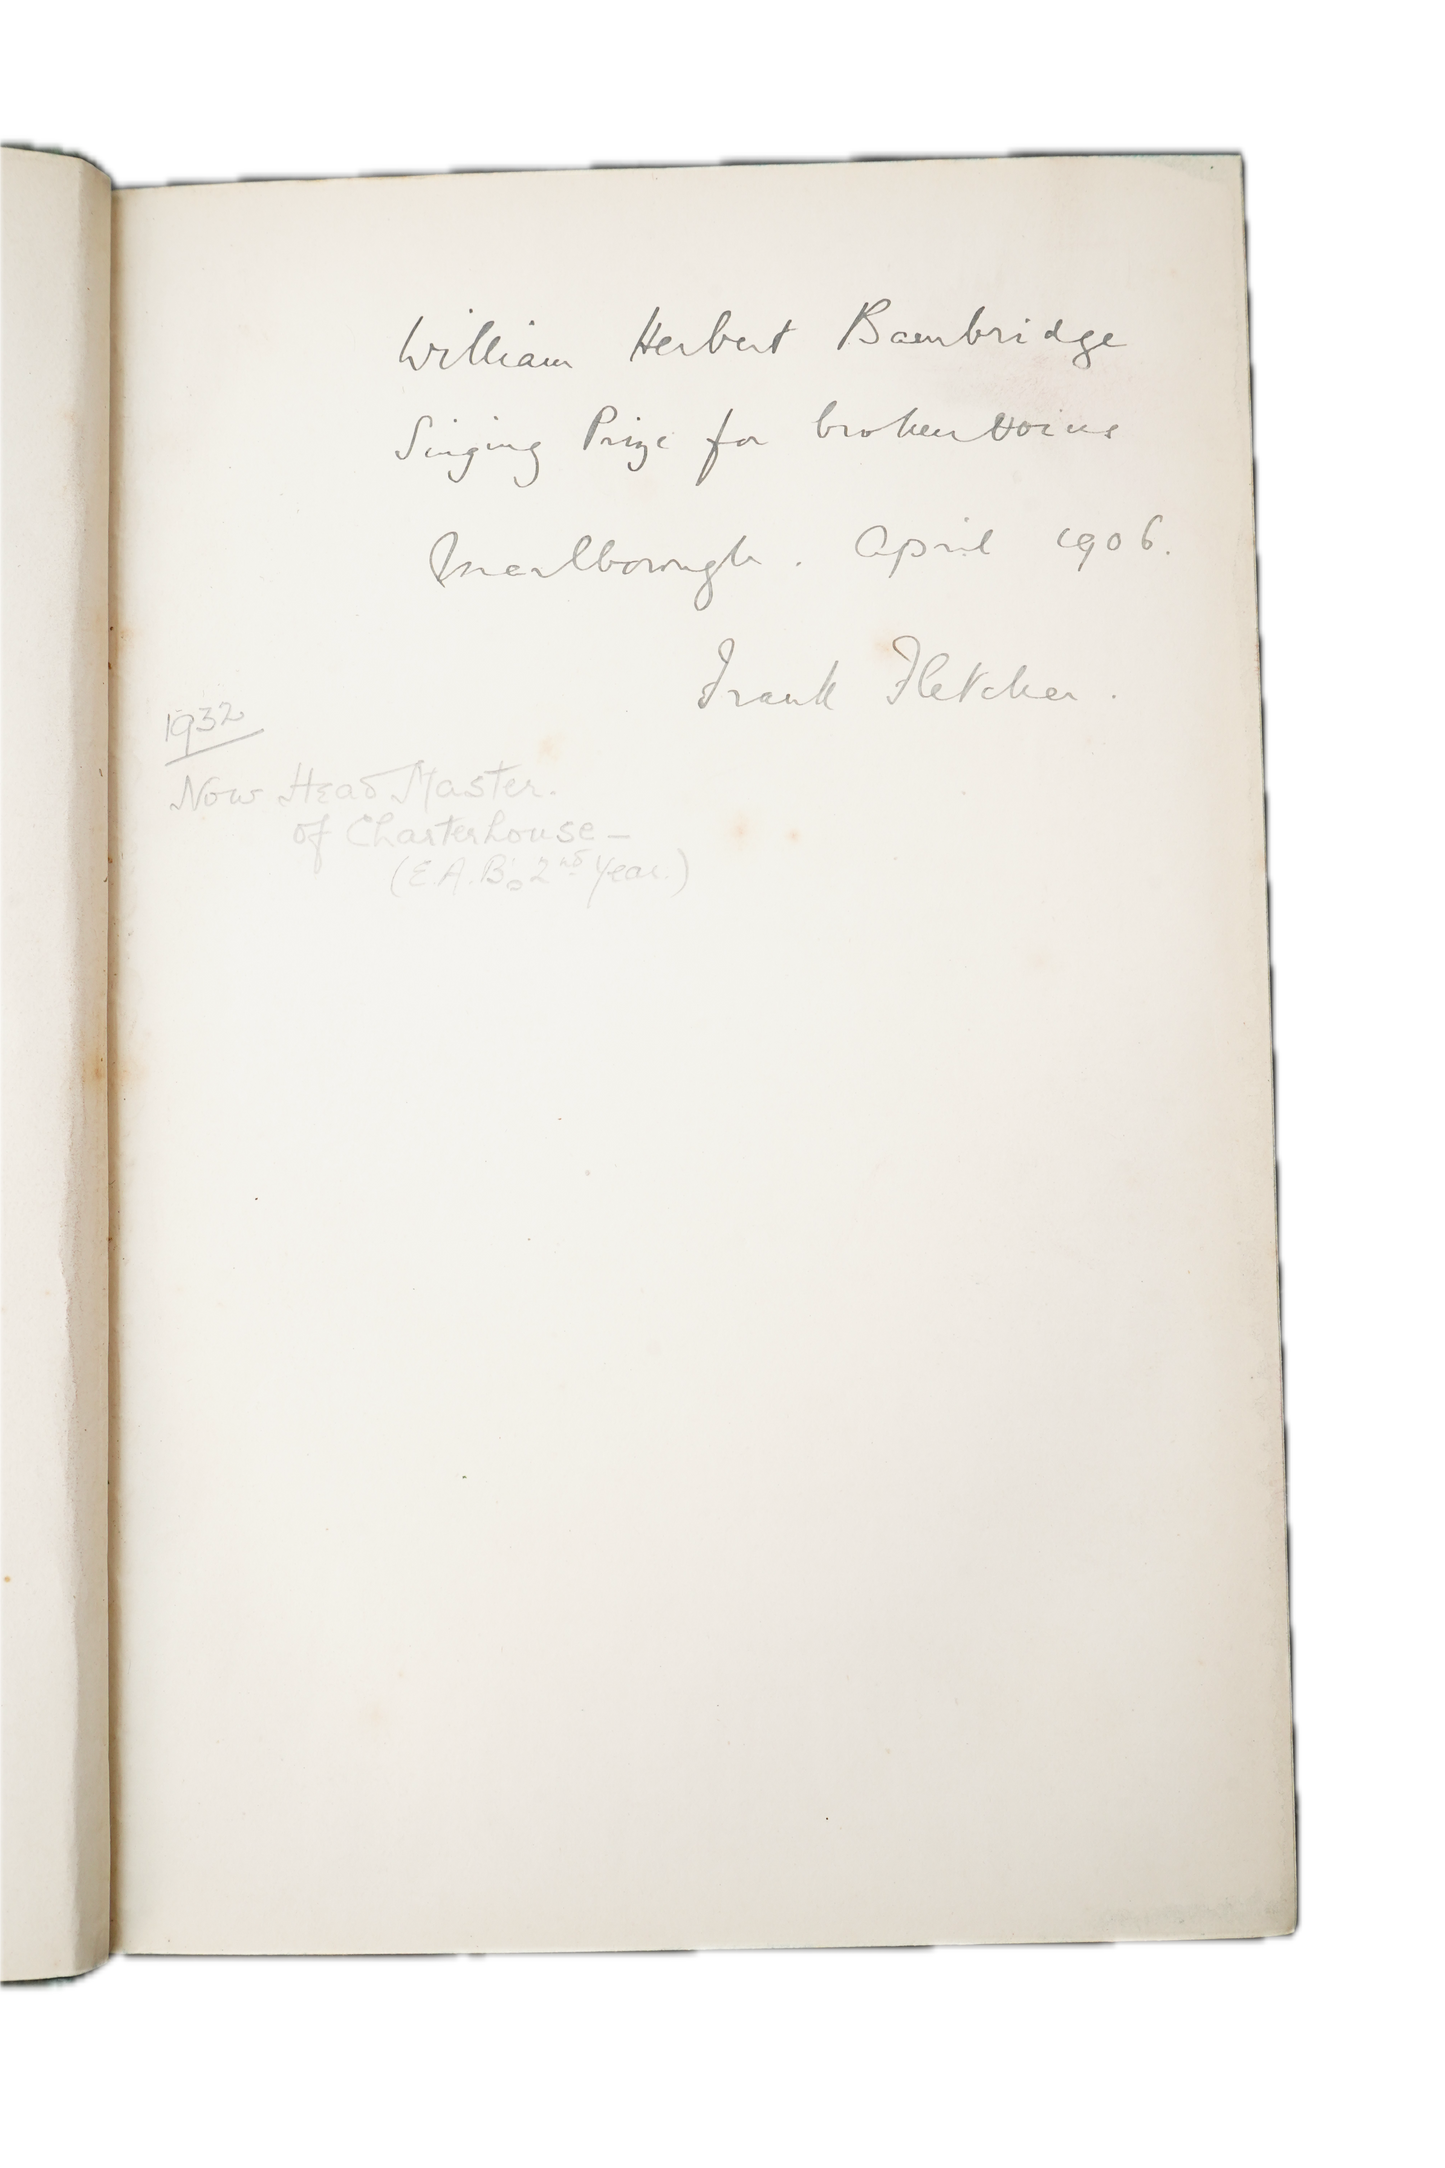 William Herbert Bambridge
Singing Prize for broken voices
Marlborough. April 1906.
Frank Fletcher.
1932
Now Head Master.
of Charterhouse—
(E.A.B's 2nd Year.)